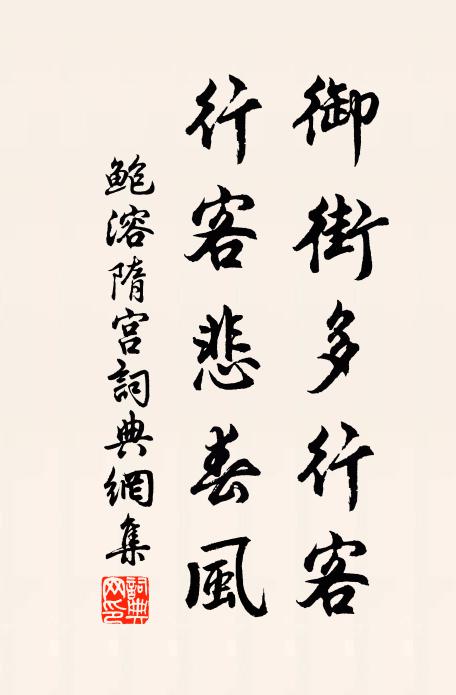 御街多行客
行客悲春風
鲍溶隋宫詞典網集
詞典网印